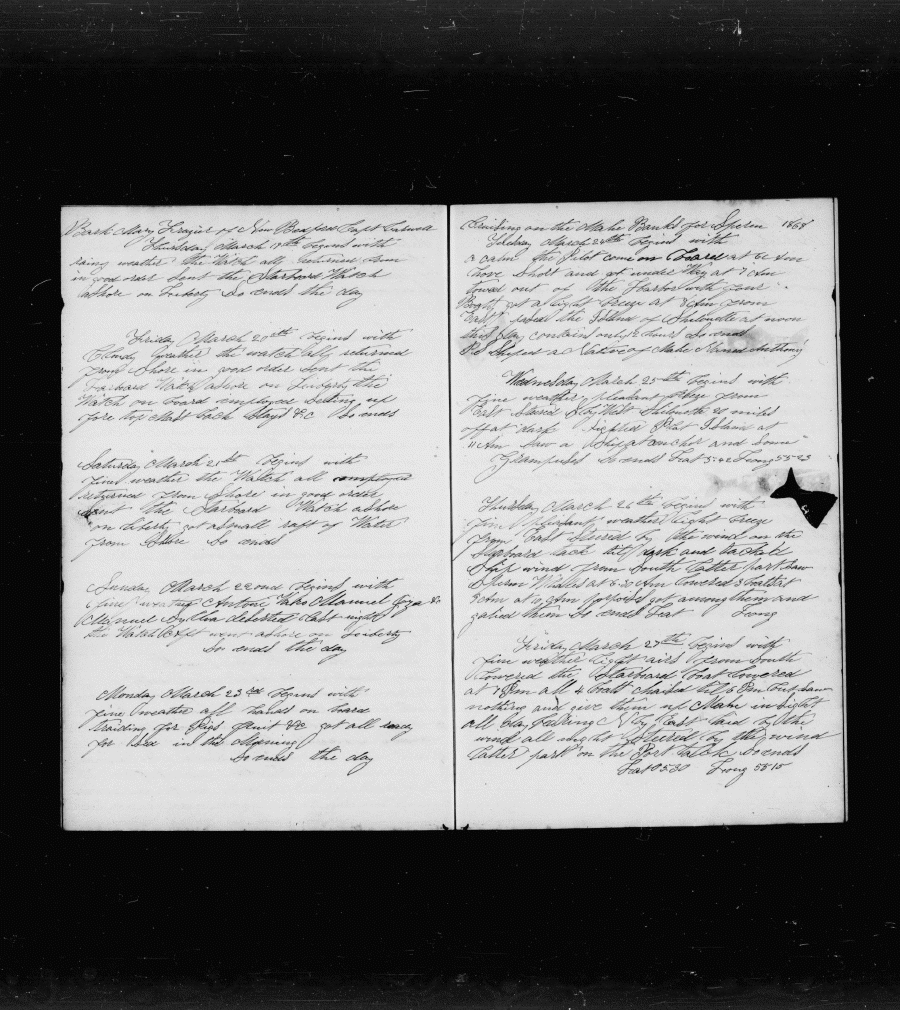 Bark Mary Frazier of New Bedford Capt
Thursday March 19th begins with
rainy weather the Watch all returned
in good order sent the Starboard Watch
ashore on Liberty So ends the day
Friday March 20th begins with
Cloudy weather the watch all returned
from Shore in good order sent the
Larboard Watch ashore on Liberty the
Watch on board employed setting up
fore top Mast back Stays &c So ends
Saturday March 21st begins with
fine weather the Watch all employed
returned from Shore in good order
sent the Starboard Watch ashore
on Liberty got a small raft of Water
from Shore So ends
Sunday March 22nd begins with
fine weather Antone Manuel &
Manuel Sylvia deserted last night
the Watch Aft went ashore on Liberty
So ends the day
Monday March 23rd begins with
fine weather all hands on board
traiding for Pigs fruit &c got all ready
for sea in the Morning
So ends the day
Cruising on the Mahe Banks for Sperm 1868
Tuesday March 24th begins with
a calm the Pilot came on board at 6 Am
hove Short and got under Way at 7 Am
towed out of the Harbor with four
Boats got a light breeze at 8 Am from
East passed the Island of Siluette at noon
this day contains only 12 hours So ends
Shiped a Native of Mahe Named Anthony
Wednesday March 25th begins with
fine weather pleasant breeze from
East Steered by West Siluette 20 miles
off at dark Island at
11 Am Saw a Ship at anchor and Some
Grampuses So ends Lat 5.42 Long 55.23
Thursday March 26th begins with
fine Pleasant weather light breeze
from East Steered by the wind on the
Starboard tack till dark and tacked
Ship wind from South latter part Saw
Sperm Whales at 6.30 Am lowered 3 boats at
at Am got among them and
galied them So ends Lat Long
Friday March 27th begins with
fine weather light airs from South
Lowered the Starboard boat lowered
at 1 Pm all 4 boats chased till 5 Pm but saw
nothing and give them up Mahe in Sight
all day bearing N by East laid by the
wind all night Steered by the wind
latter part on the Port tack So ends
Lat 5.30 Long 55.15